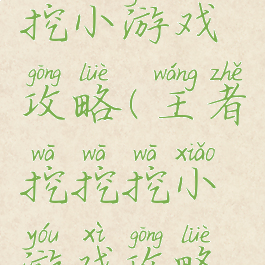 挖小游戏
gōng lüè wáng zhě
攻略(王者
wā wā wā xiǎo
挖挖挖小
yóu xì gōng lüè
游戏攻略